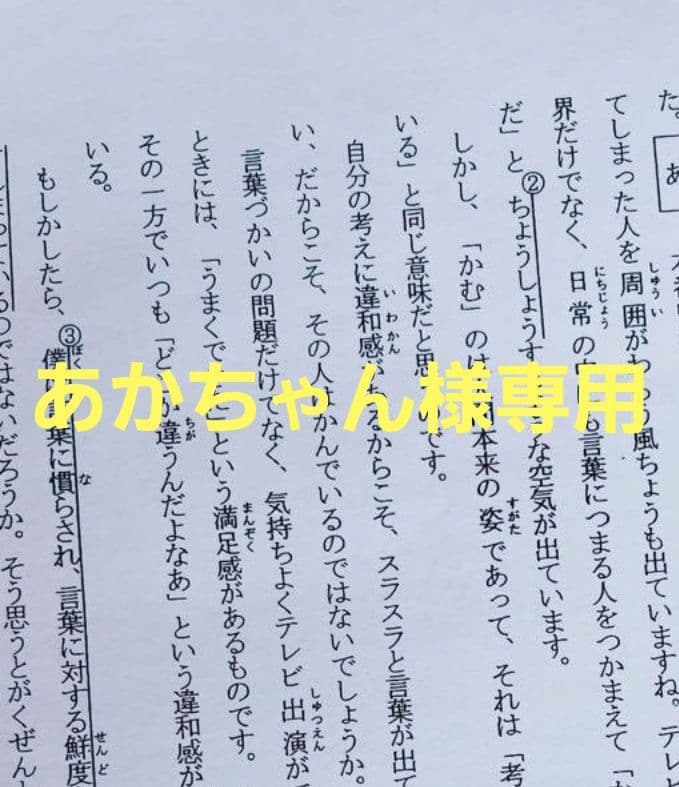 た。
あ
てしまった人を周囲がわらう風ちょうも出ていますね。テレ
界だけでなく、日常の も言葉につまる人をつかまえて「
だ」と②ちょうしょうす な空気が出ています。
しかし、「かむ」の 本来の姿であって、それは「考
いる」と同じ意味だと思 です。
自分の考えに違和感があるからこそ、スラスラと言葉が出て
い、だからこそ、その人はかんでいるのではないでしょうか。
言葉づかいの問題だけでなく、気持ちよくテレビ出演が
ときには、「うまくで という満足感があるものです。
その一方でいつも「ど 違うんだよなあ」という違和感が
いる。
もしかしたら、③僕は言葉に慣らされ、言葉に対する鮮度
のではないだろうか。そう思うとがくぜん
あかちゃん様専用